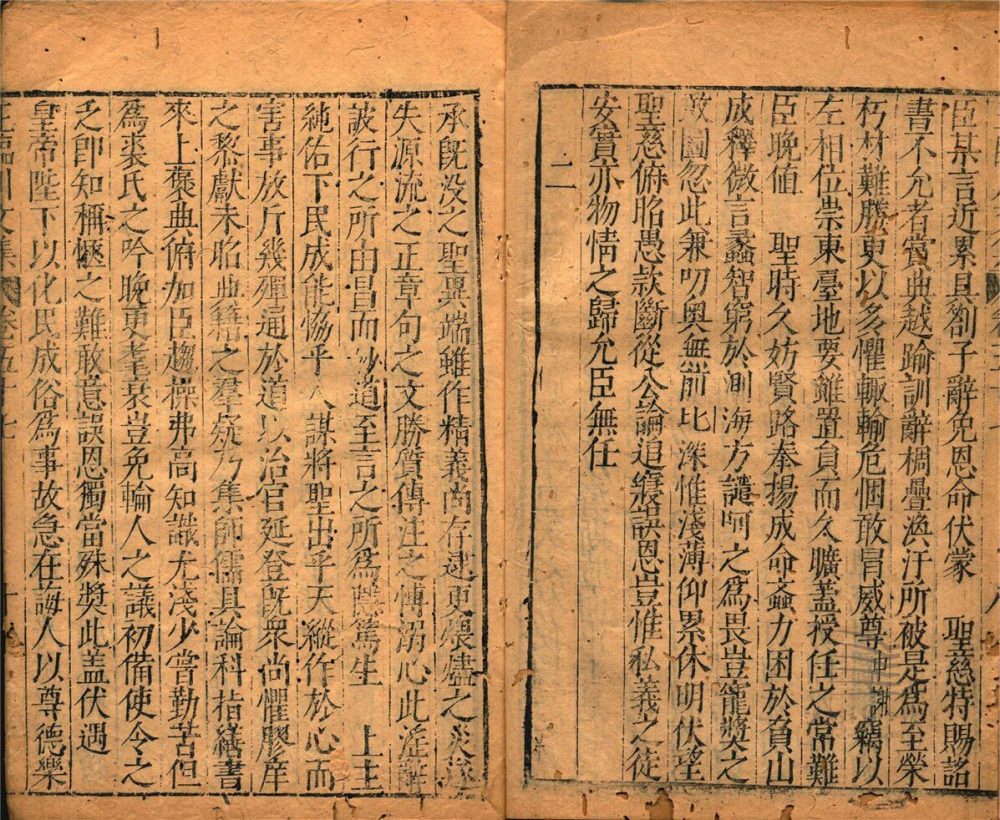 臣某言近累具劄子辭免恩命伏蒙　聖慈特賜詔
書不允者賞典越踰訓辭稠疊渙汗所被是為至榮
朽材難勝更以多懼輙輸危悃敢冒威尊中謝竊以
左相位崇東臺地要雖置員而久曠蓋授任之常難
臣晚值　聖時久妨賢路奉揚成命蚉力困於負山
成釋微言蠡智窮於測海方譴呵之為畏豈寵奬之
敢圖忽此兼叨奥無前比深惟淺薄仰累休明伏望
聖慈俯昭愚款斷從公論追寢誤恩豈惟私義之徒
安實亦物情之歸允臣無任
二
承既没之聖異端雖作精義尚存逮更煨燼之災遂
失源流之正章句之文勝質傳注之愽溺心此淫辭
詖行之所由昌而妙道至言之所為隱篤生　上主
純佑下民成能恊乎人謀將聖出乎天縱作於心而
害事放斥幾殫通於道以治官延登既衆尚懼膠庠
之黎獻未昭典籍之羣疑乃集師儒具論科指繕書
來上褒典俯加臣趨操弗高知識尤淺少嘗勤苦但
為裘氏之吟晚更耄衰豈免輪人之議初備使令之
乏即知稱愜之難敢意誤恩獨當殊奬此盖伏遇
皇帝陛下以化民成俗為事故急在誨人以尊德樂